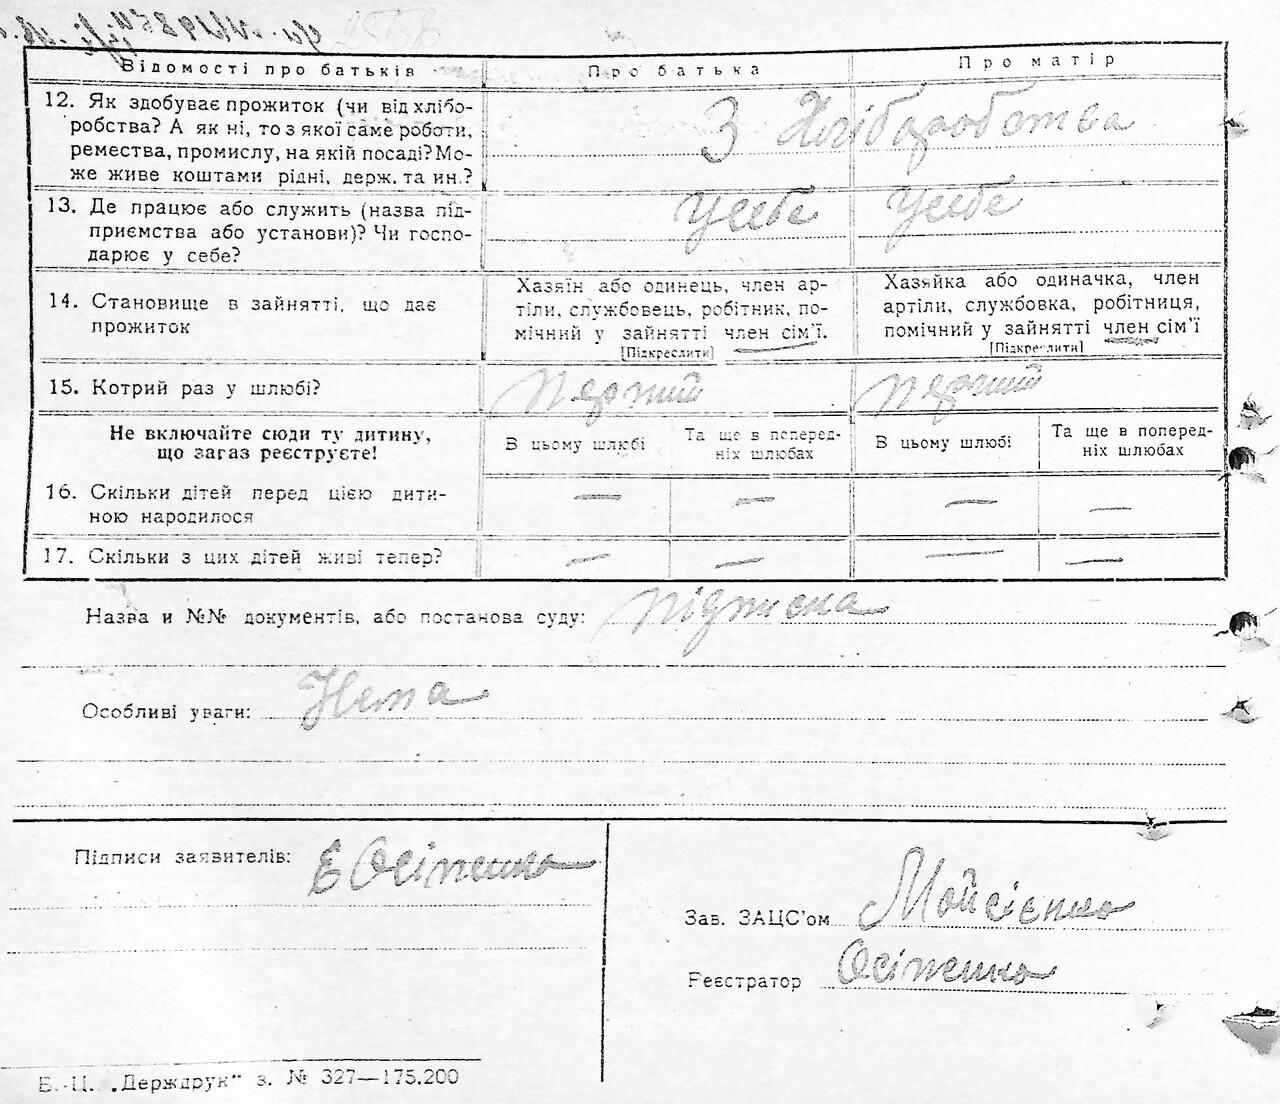 2556
Відомості про батьків Про батька Про матір
12. Як здобуває прожиток (чи від хлібо-
робства? А як ні, то з якої саме роботи,
ремества, промислу, на якій посаді? Мо-
же живе коштами рідні, держ. та ин.?
З Хліборобства
13. Де працює або служить (назва під-
приємства або установи)? Чи госпо-
дарює у себе?
Усебе Усебе
14. Становище в зайнятті, що дає
прожиток
Хазяїн або одинець, член ар-
тіли, службовець, робітник, по-
мічний у зайнятті член сім'ї.
[Підкреслити]
Хазяйка або одиначка, член
артіли, службовка, робітниця,
помічний у зайнятті член сім'ї
[Підкреслити]
15. Котрий раз у шлюбі?
Перший Перший
Не включайте сюди ту дитину,
що загаз реєструєте!
В цьому шлюбі
Та ще в поперед-
ніх шлюбах
В цьому шлюбі
Та ще в поперед-
ніх шлюбах
16. Скільки дітей перед цією дити-
ною народилося
— — — —
17. Скільки з цих дітей живі тепер?
— — — —
Назва и №№ документів, або постанова суду: підписка
Особливі уваги: Нема
Підписи заявителів: Е Осіпенко
Зав. ЗАЦС'ом Мойсієнко
Реєстратор Осіпенко
Б.-Ц. „Держдрук" з. № 327—175.200